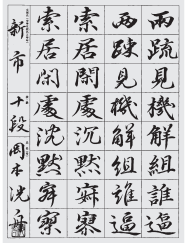 兩疏見機解組誰逼
兩疎見機解組誰逼
索居閑處沉默寂寥
索居閑處沈默寂寥
新市 十段 岡本沈